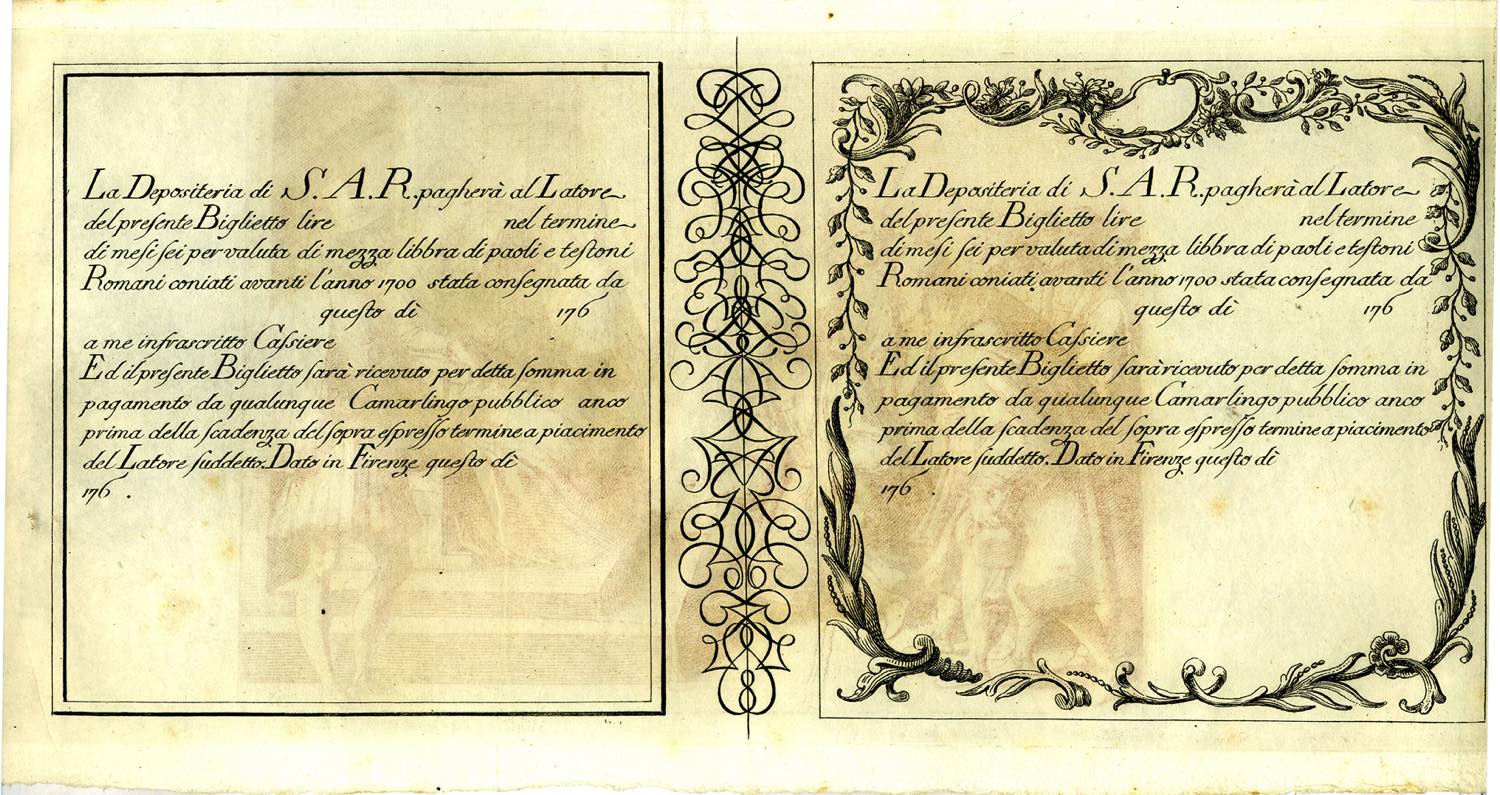 La Depositeria di S. A. R. pagherà al Latore
del preſente Biglietto lire nel termine
di meſi ſei per valuta di mezza libbra di paoli e teſtoni
Romani coniati avanti l'anno 1700 stata conſegnata da
queſto dì 176
a me infraſcritto Caſsiere
Ed il preſente Biglietto ſarà ricevuto per detta ſomma in
pagamento da qualunque Camarlingo pubblico anco
prima della ſcadenza del ſopra eſpreſſo termine a piacimento
del Latore ſuddetto. Dato in Firenze queſto dì
176 .
La Depositeria di S. A. R. pagherà al Latore
del preſente Biglietto lire nel termine
di meſi ſei per valuta di mezza libbra di paoli e teſtoni
Romani coniati avanti l'anno 1700 stata conſegnata da
queſto dì 176
a me infraſcritto Caſsiere
Ed il preſente Biglietto ſarà ricevuto per detta ſomma in
pagamento da qualunque Camarlingo pubblico anco
prima della ſcadenza del ſopra eſpreſſo termine a piacimento
del Latore ſuddetto. Dato in Firenze queſto dì
176 .